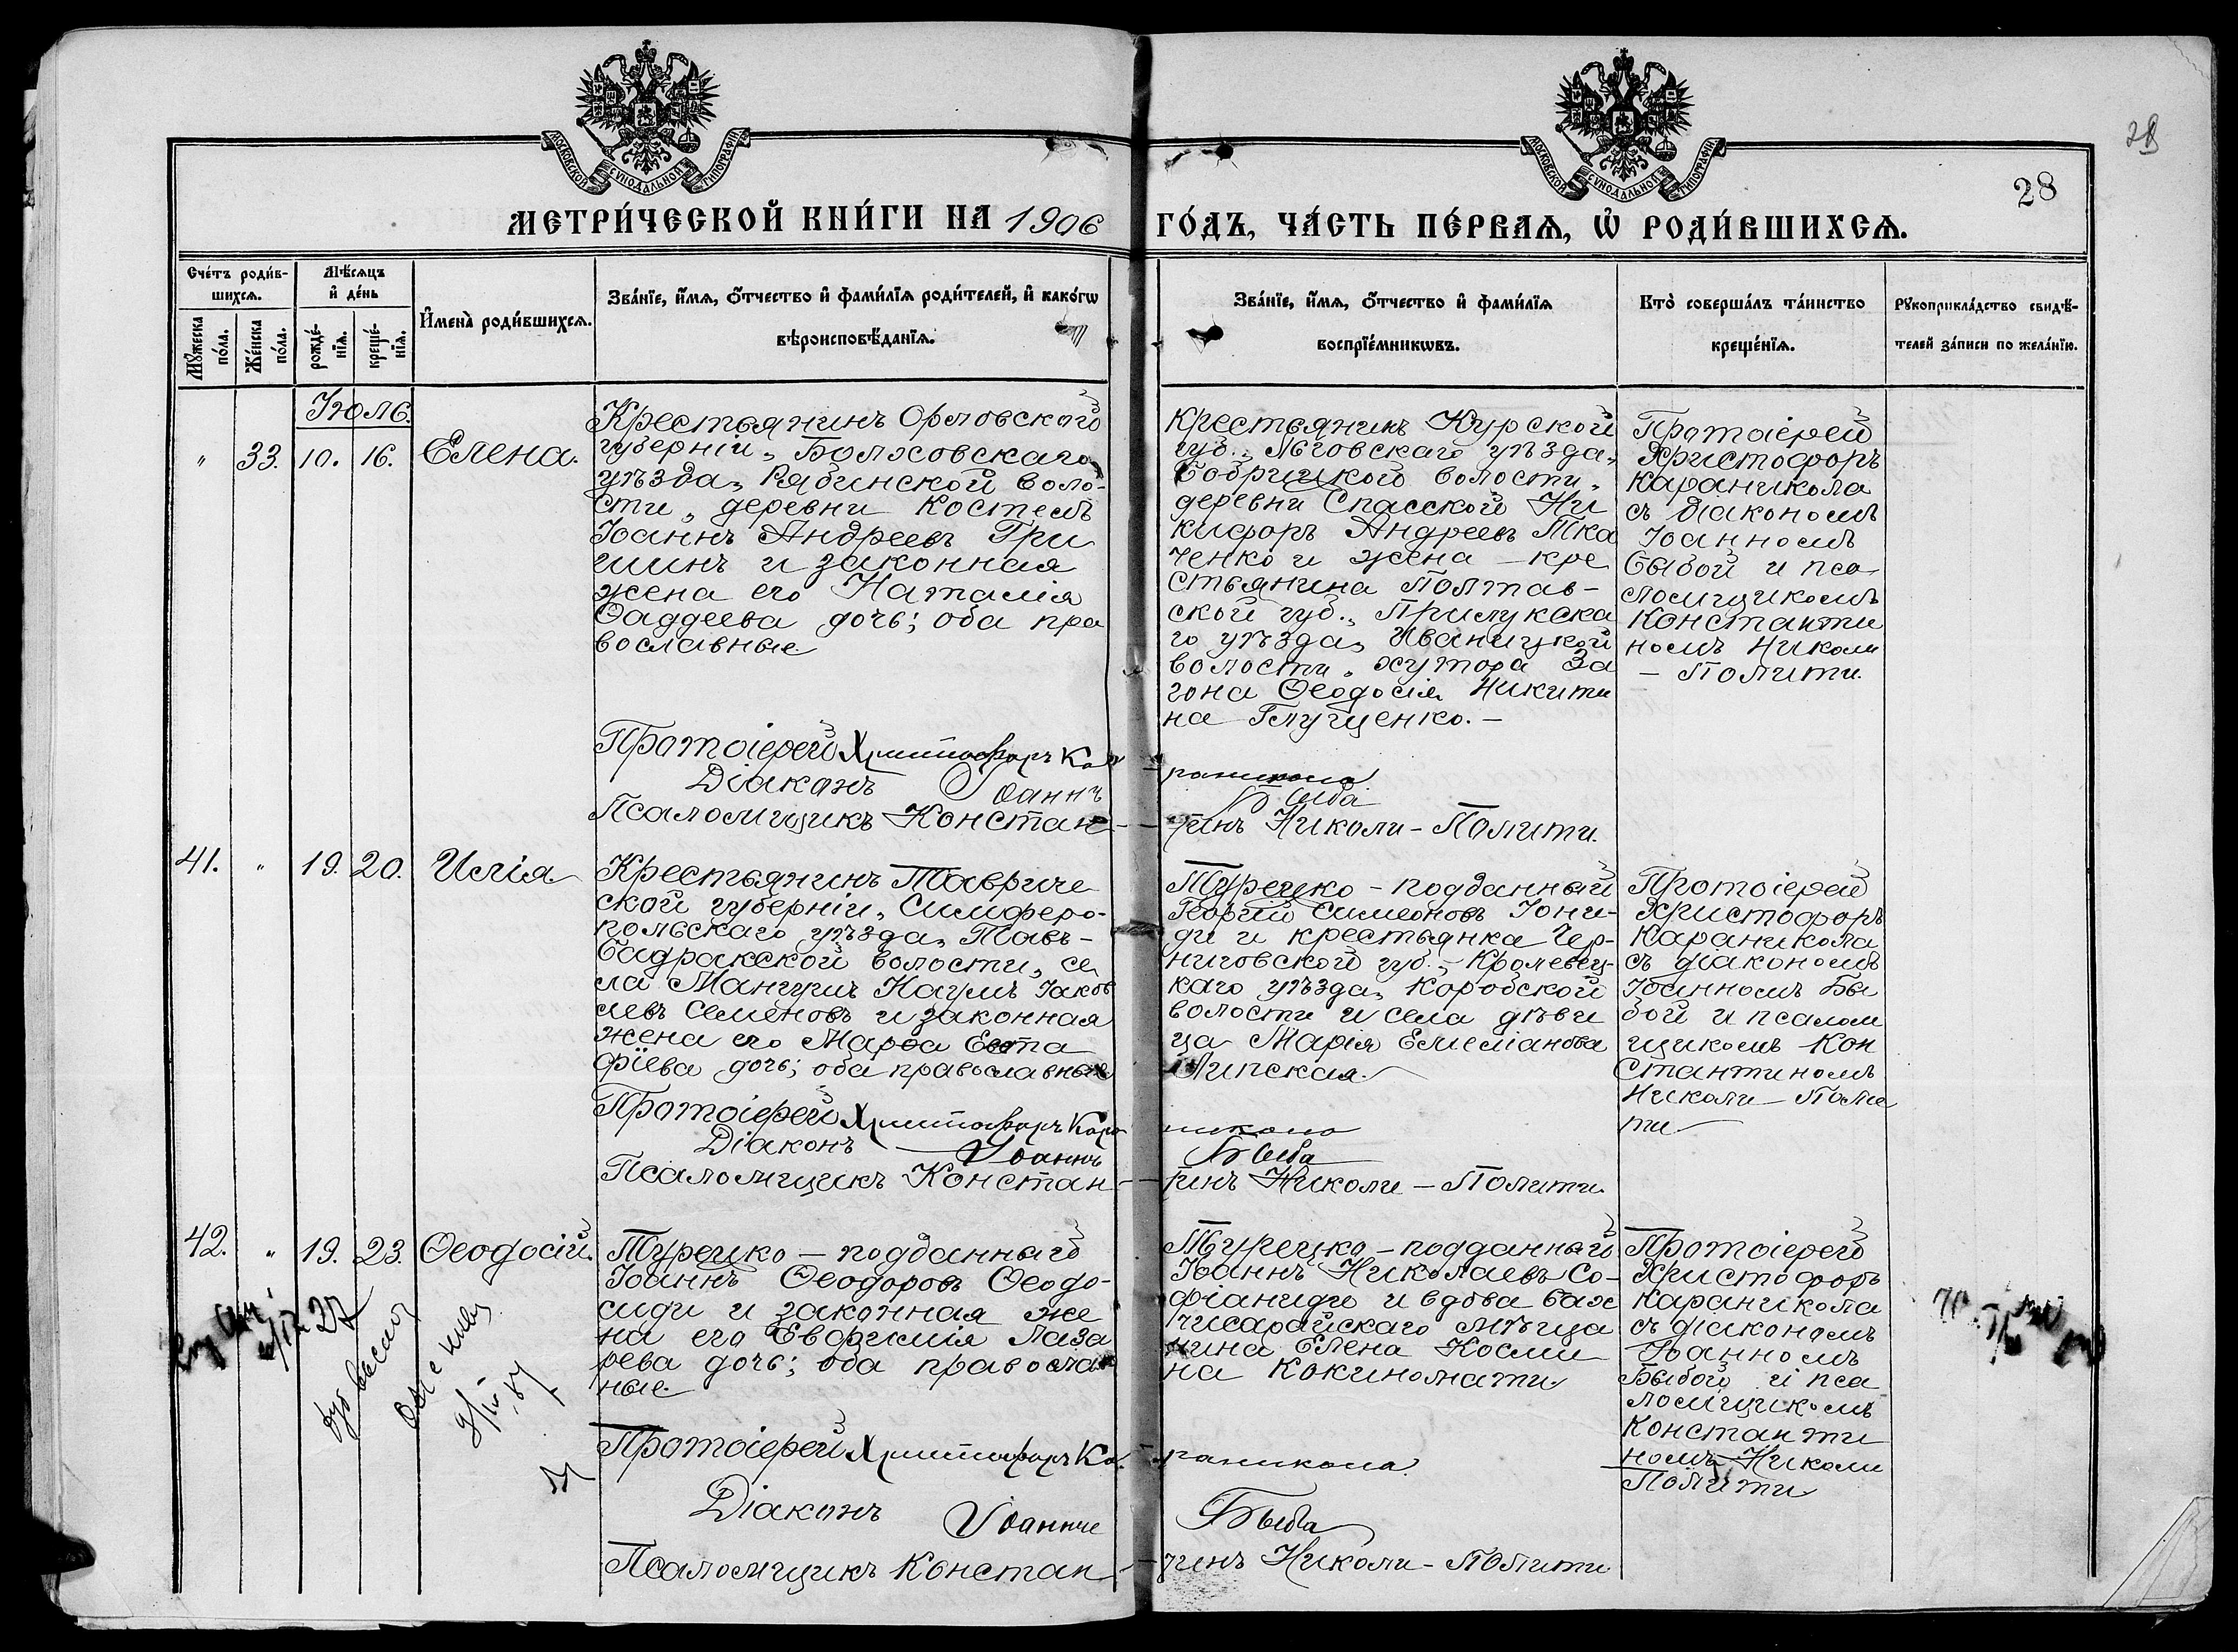 МОСКОВСКОЙ СѴНОДАЛЬНОЙ ТИПОГРАФІИ
МОСКОВСКОЙ СѴНОДАЛЬНОЙ ТИПОГРАФІИ
28
МЕТРИ́ЧЕСКОЙ КНИ́ГИ НА 1906 ГО́ДЪ, ЧА́СТЬ ПЕ́РВАѦ, Ѡ҆ РОДИ́ВШИХСѦ.
Сче́тъ роди́в-
шихсѧ.
Мꙋ́жеска по́ла.
Же́нска по́ла.
Мѣ́сѧцъ
и҆ де́нь
рожде́-
нїѧ.
креще́-
нїѧ.
И҆мена̀ роди́вшихсѧ.
Зва́нїе, и҆́мѧ, ѻ҆́тчество и҆ фами́лїѧ роди́телей, и҆ како́гѡ
вѣроисповѣ́данїѧ.
Зва́нїе, и҆́мѧ, ѻ҆́тчество и҆ фами́лїѧ
воспрїе́мникѡвъ.
Кто̀ соверша́лъ та́инство
креще́нїѧ.
Рꙋкоприкла́дство свидѣ́-
телей за́писи по жела́нїю.
Іюль.
" 33. 10. 16. Елена.
Крестьянинъ Орловской
губерніи, Болховскаго
уѣзда, Рябинской воло-
сти, деревни Костемъ
Іоаннъ Андреевъ Гри
шинъ и законная
жена его Наталія
Ѳаддеева дочь; оба пра
вославные
Крестьянинъ Курской
губ., Льговскаго уѣзда,
Бобрицкой волости,
деревни Спасской Ни
кифоръ Андреевъ Тка
ченко и жена кре
стьянина Полтав-
ской губ., Прилукска
го уѣзда, Иваницкой
волости, хутора За
гона Ѳеодосія Никити
на Глущенко. —
Протоіерей
Христофоръ
Караникола
съ діакономъ
Іоанномъ
Быбой и пса
ломщикомъ
Константи
номъ Николи
— Полити.
Протоіерей Христофоръ Караникола
Діаконъ Іоаннъ Быба
Псаломщикъ Констан- тинъ Николи - Полити.
41. " 19. 20. Илія
Крестьянинъ Тавриче
ской губерніи, Симферо-
польскаго уѣзда, Тавъ-
Бадракской волости, се
ла Мангушъ Наумъ Іаков
левъ Семеновъ и законная
жена его Марѳа Евста
фіева дочь; оба православные
Турецко - подданный
Георгій Симеоновъ Іони-
ди и крестьянка Чер-
ниговской губ., Кролевец-
каго уѣзда, Коробской
волости и села дѣви
ца Марія Емеліанова
Липская.
Протоіерей
Христофоръ
Караникола
съ діакономъ
Іоанномъ Бы
бой и псалом
щикомъ Кон
стантиномъ
Николи Поли
ти
Протоіерей Христофоръ Караникола
Діаконъ Іоаннъ Быба
Псаломщикъ Констан- тинъ Николи - Полити.
42. " 19. 23. Ѳеодосій.
Турецко - подданный
Іоаннъ Ѳеодоровъ Ѳеодо-
сиди и законная же
на его Евфимія Лаза
рева дочь; оба православ
ные.
Турецко - подданный
Іоаннъ Николаевъ Со-
фіаниди и вдова бах
чисарайскаго мѣща
нина Елена Косми
на Кокиномати
Протоіерей
Христофоръ
Караникола
съ діакономъ
Іоанномъ
Быбой и пса
ломщикомъ
Константи
номъ Николи
Полити
Протоіерей Христофоръ Караникола.
Діаконъ Іоаннъ Быба
Псаломщикъ Констан- тинъ Николи - Полити